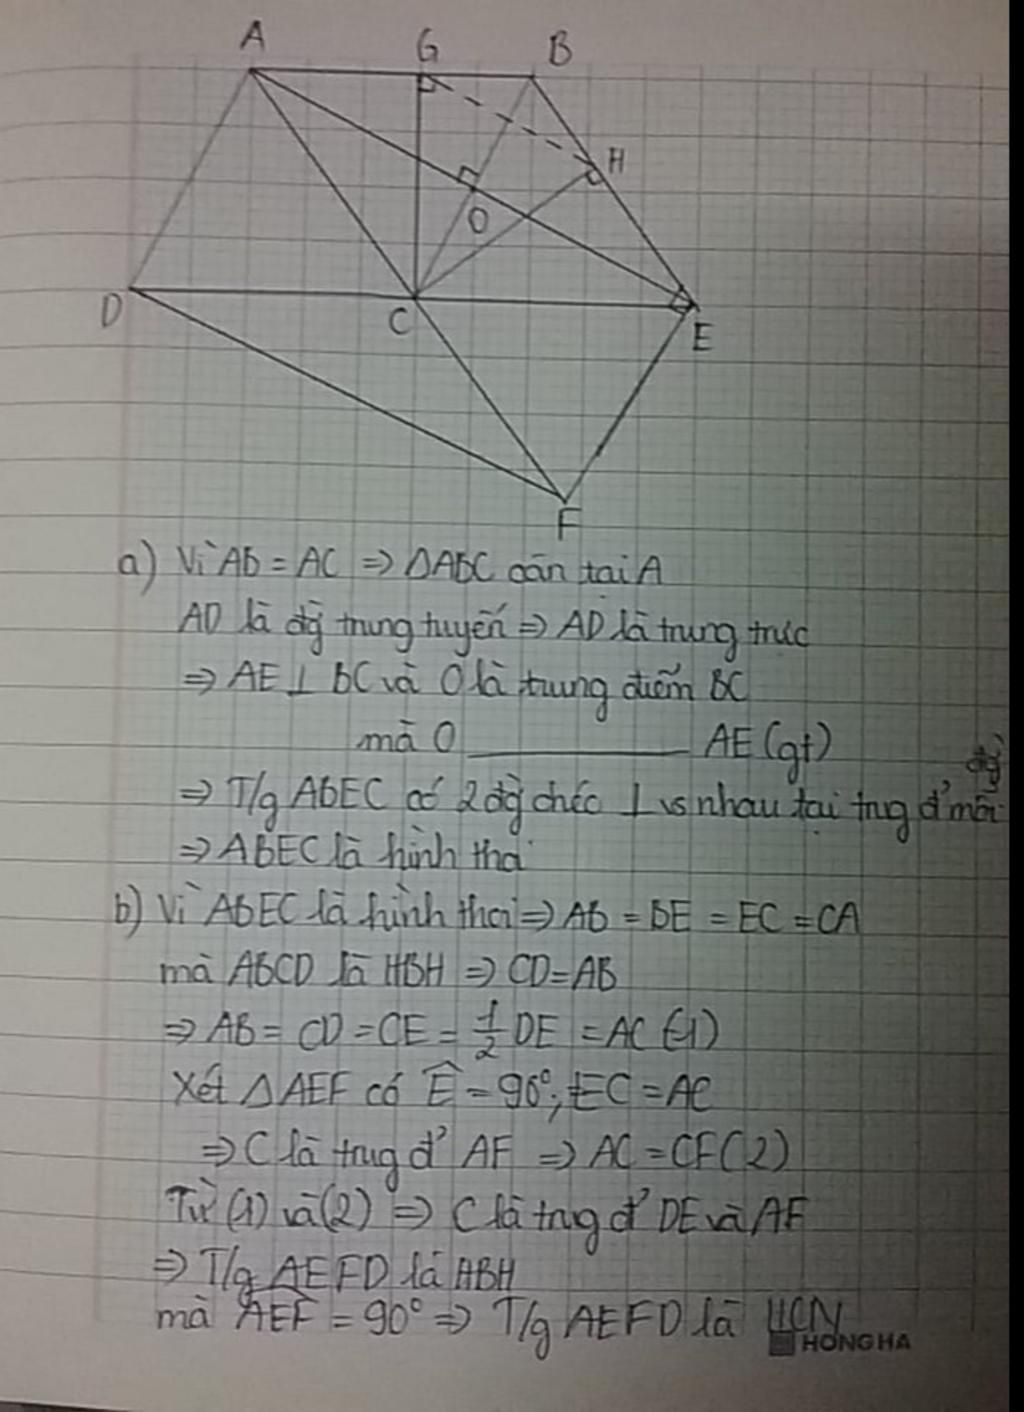 A G B
H
O
D C E
F
a) Vì AB = AC => ΔABC cân tại A
AO là đg trung tuyến => AO là trung trực
=> AE ⊥ BC và O là trung điểm BC
mà O ________ AE (gt)
=> T/g ABEC có 2 đg chéo ⊥ vs nhau tại trug đ' mỗi đg
=> ABEC là hình thoi
b) Vì ABEC là hình thoi => AB = BE = EC = CA
mà ABCD là HBH => CD = AB
=> AB = CD = CE = 1/2 DE = AC (1)
Xét ΔAEF có Ê = 90°; EC = AC
=> C là trug đ' AF => AC = CF (2)
Từ (1) và (2) => C là trug đ' DE và AF
=> T/g AEFD là HBH
mà AEF = 90° => T/g AEFD là HCN
HONG HA